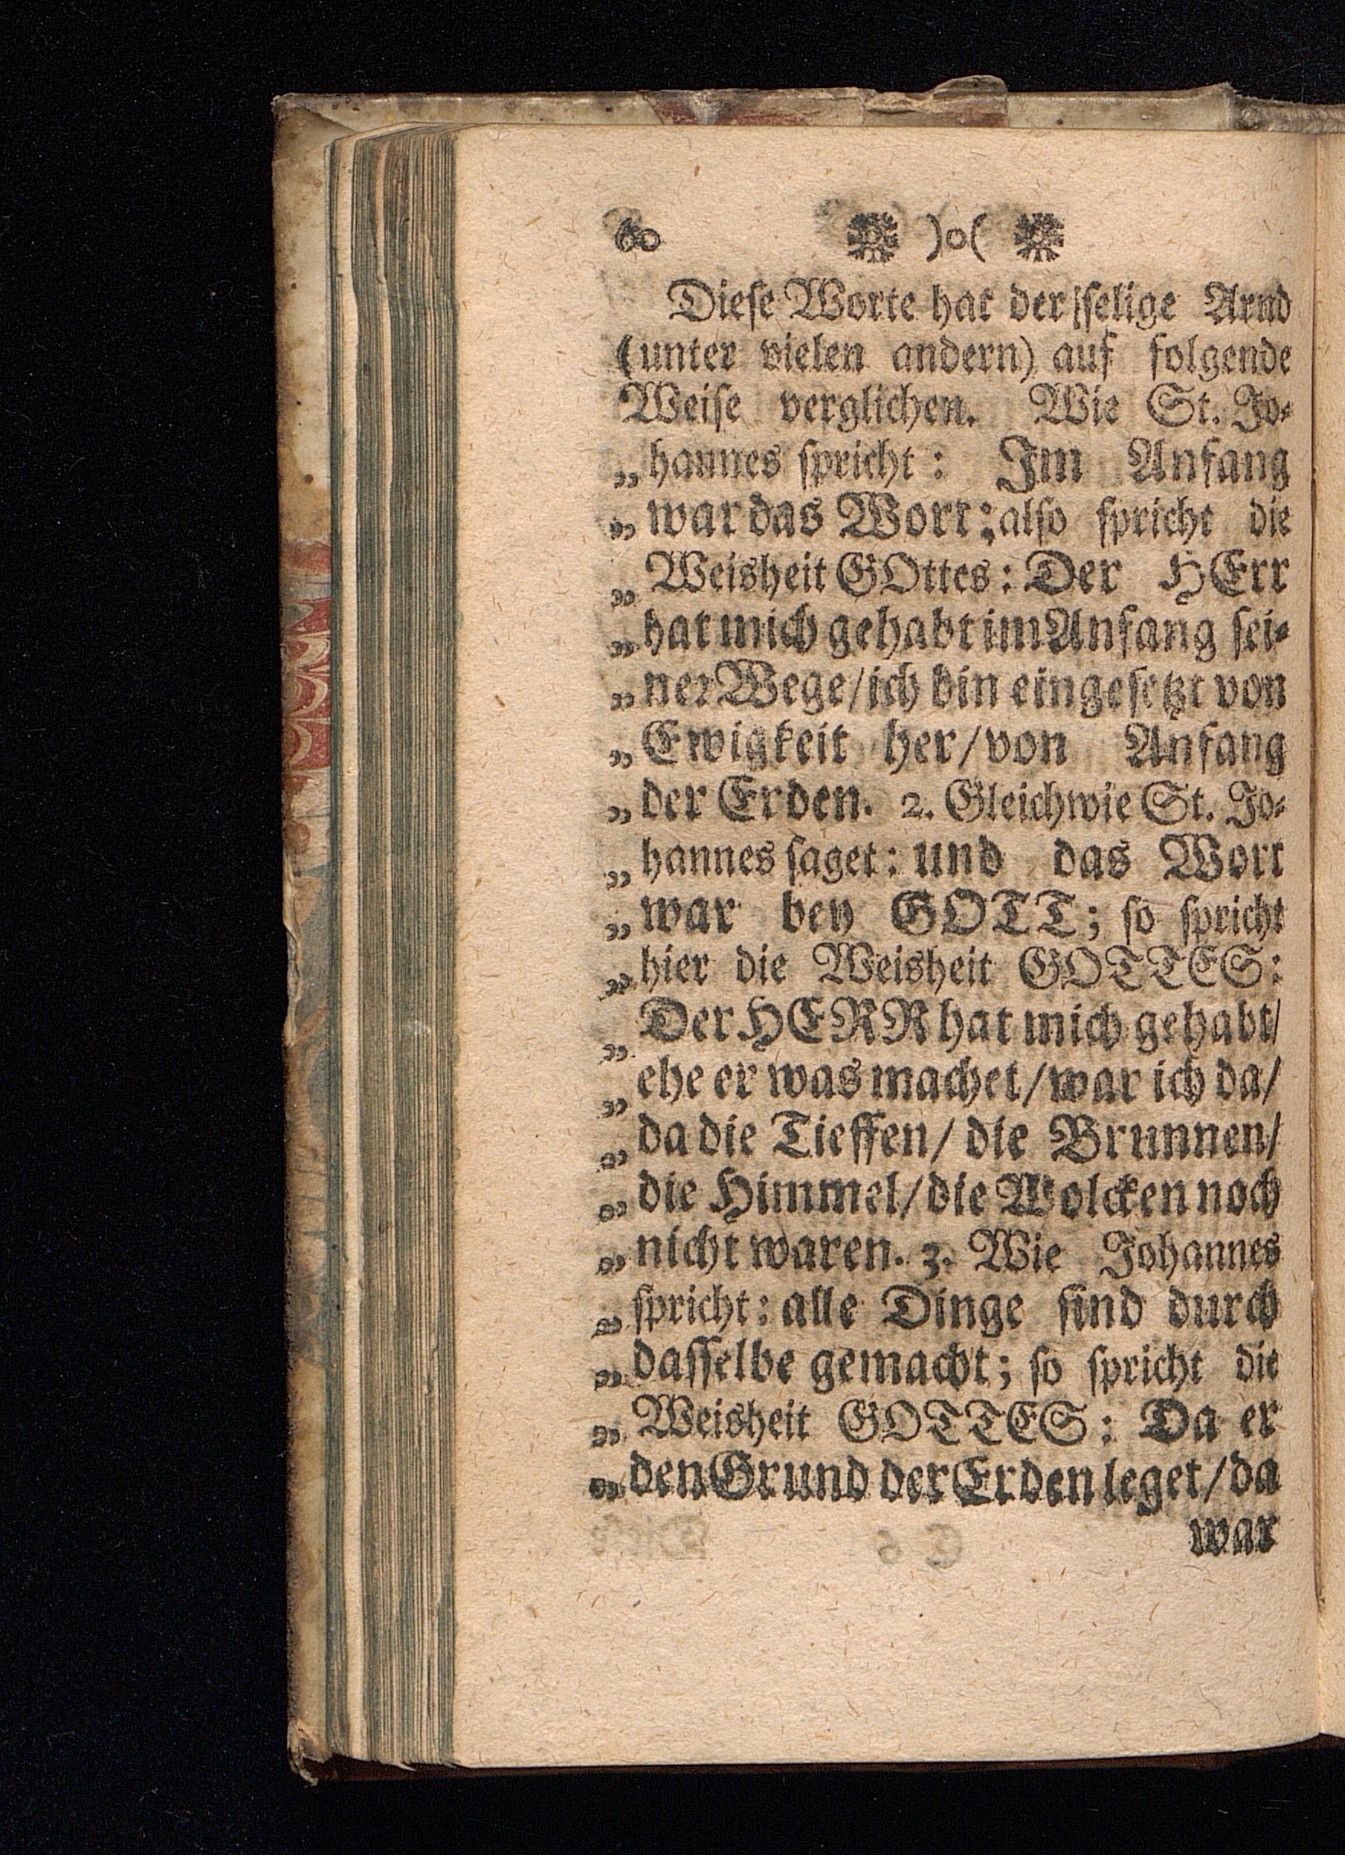 60 )o(
Diese Worte hat der selige Arnd
(unter vielen andern) auf folgende
Weise verglichen. Wie St. Jo-
„ hannes spricht: Im Anfang
„ war das Wort; also spricht die
„ Weisheit GOttes: Der HErr
„ hat mich gehabt im Anfang sei-
„ ner Wege/ ich bin eingesetzt von
„ Ewigkeit her/ von Anfang
„ der Erden. 2. Gleichwie St. Jo-
„ hannes saget: und das Wort
„ war bey GOTT; so spricht
„ hier die Weisheit GOTTES:
„ Der HERR hat mich gehabt/
„ ehe er was machet/ war ich da/
„ da die Tieffen/ die Brunnen/
„ die Himmel/ die Wolcken noch
„ nicht waren. 3. Wie Johannes
„ spricht: alle Dinge sind durch
„ dasselbe gemacht; so spricht die
„ Weisheit GOTTES: Da er
„ den Grund der Erden leget/ da
war